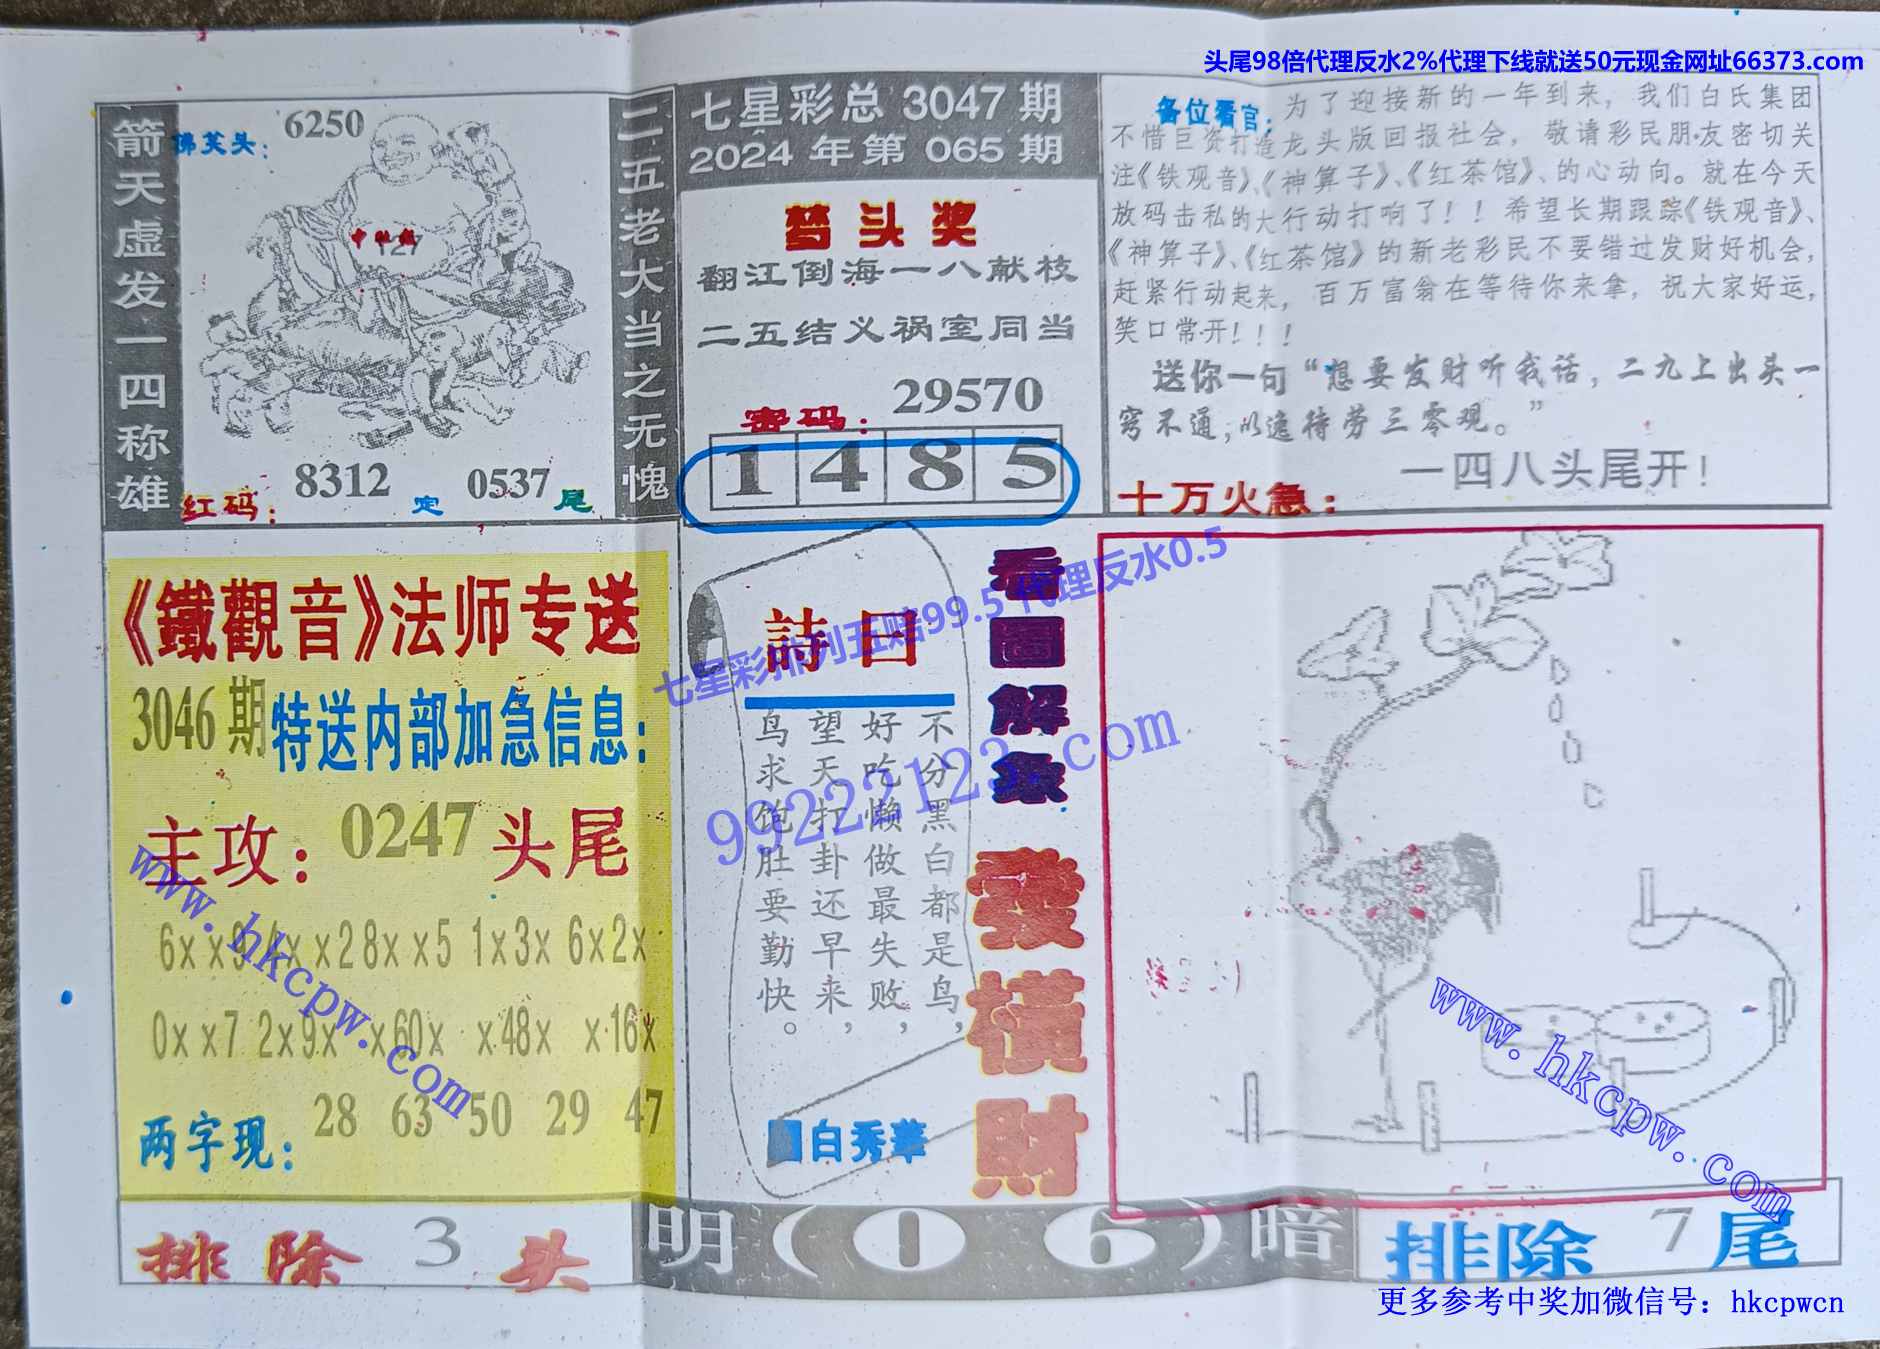 头尾98倍代理反水2%代理下线就送50元现金网址66373.com
箭天虚发一四称雄
佛笑头：
6250
127
红码：
8312
定
0537
尾
二五老大当之无愧
七星彩总 3047 期
2024 年第 065 期
梦头奖
翻江倒海一八献枝
二五结义祸室同当
密码：
29570
1 4 8 5
各位看官：为了迎接新的一年到来，我们白氏集团
不惜巨资打造龙头版回报社会，敬请彩民朋友密切关
注《铁观音》、《神算子》、《红茶馆》、的心动向。就在今天
放码击私的大行动打响了！！希望长期跟踪《铁观音》、
《神算子》、《红茶馆》的新老彩民不要错过发财好机会，
赶紧行动起来，百万富翁在等待你来拿，祝大家好运，
笑口常开！！！
送你一句“想要发财听我话，二九上出头一
穷不通；以逸待劳三零观。”
十万火急：
一四八头尾开！
《鐵觀音》法师专送
3046期 特送内部加急信息：
主攻：0247头尾
6xx9 4xx2 8xx5 1x3x 6x2x
0xx7 2x9x x60x x48x x16x
两字现：
28 63 50 29 47
詩曰
不分黑白都是鸟，
好吃懒做最失败，
望天打卦还早来，
鸟求饱肚要勤快。
白秀華
看圖解象
發橫財
七星彩排列五赔99.5 代理反水0.5
99222123.com
www.hkcpw.com
www.hkcpw.com
排除 3 头
明（0 6）暗
排除 7 尾
更多参考中奖加微信号：hkcpwcn